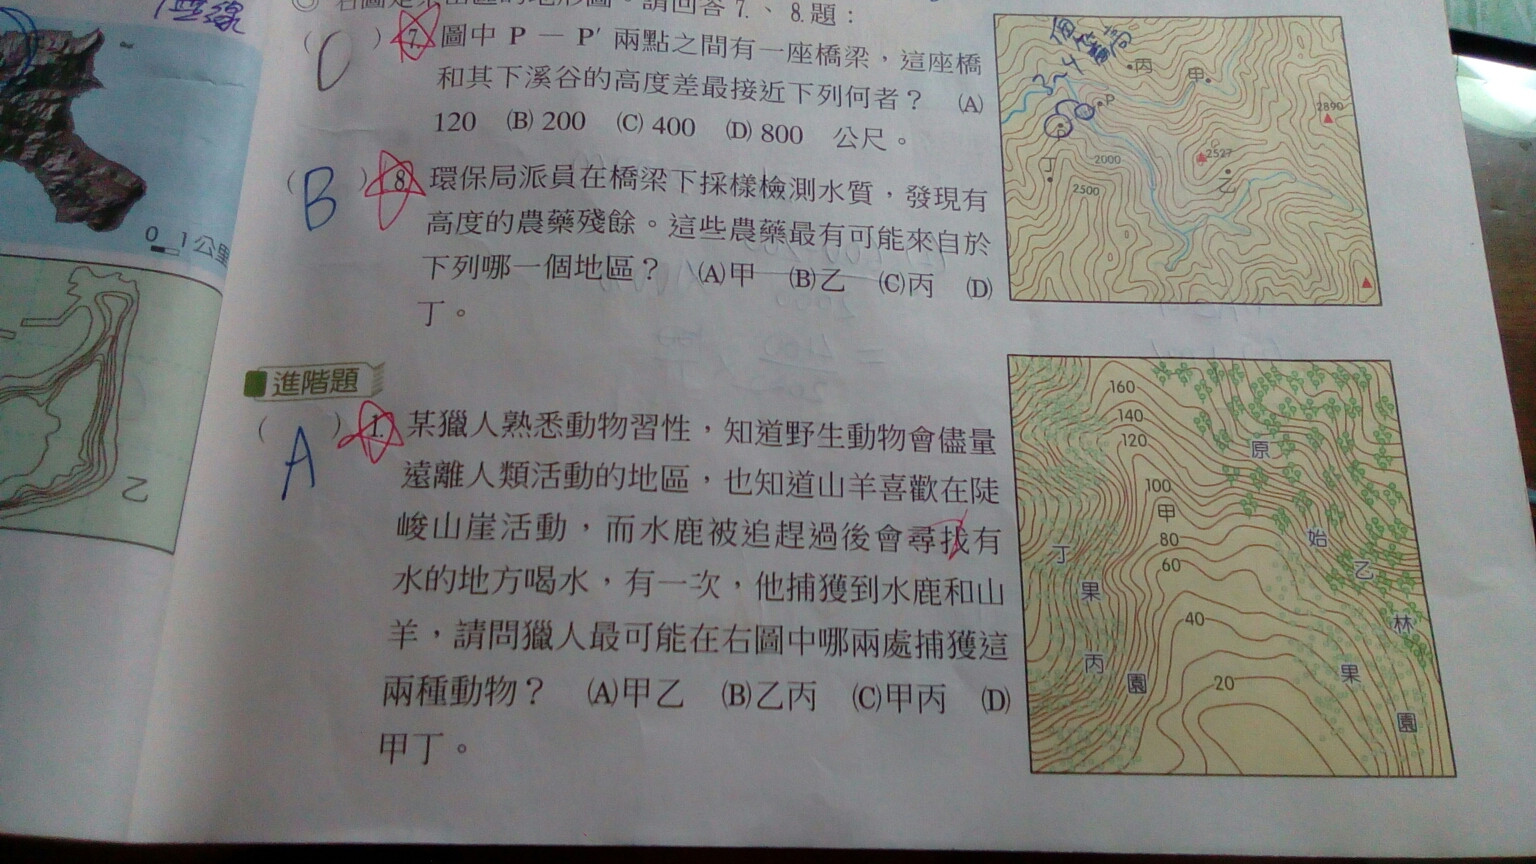 藍線
右圖是某山區的地形圖。請回答 7.、8.題：
( C ) 7. 圖中 P — P′ 兩點之間有一座橋梁，這座橋
和其下溪谷的高度差最接近下列何者？ (A)
120 (B) 200 (C) 400 (D) 800 公尺。
( B ) 8. 環保局派員在橋梁下採樣檢測水質，發現有
高度的農藥殘餘。這些農藥最有可能來自於
下列哪一個地區？ (A)甲 (B)乙 (C)丙 (D)
丁。
丙
甲
P
2890
2527
丁
2000
乙
2500
0 1公里
乙
進階題
( A ) 1. 某獵人熟悉動物習性，知道野生動物會儘量
遠離人類活動的地區，也知道山羊喜歡在陡
峻山崖活動，而水鹿被追趕過後會尋找有
水的地方喝水，有一次，他捕獲到水鹿和山
羊，請問獵人最可能在右圖中哪兩處捕獲這
兩種動物？ (A)甲乙 (B)乙丙 (C)甲丙 (D)
甲丁。
160
140
120
原
100
甲
80
始
丁
60
乙
果
40
林
丙
果
園
20
園